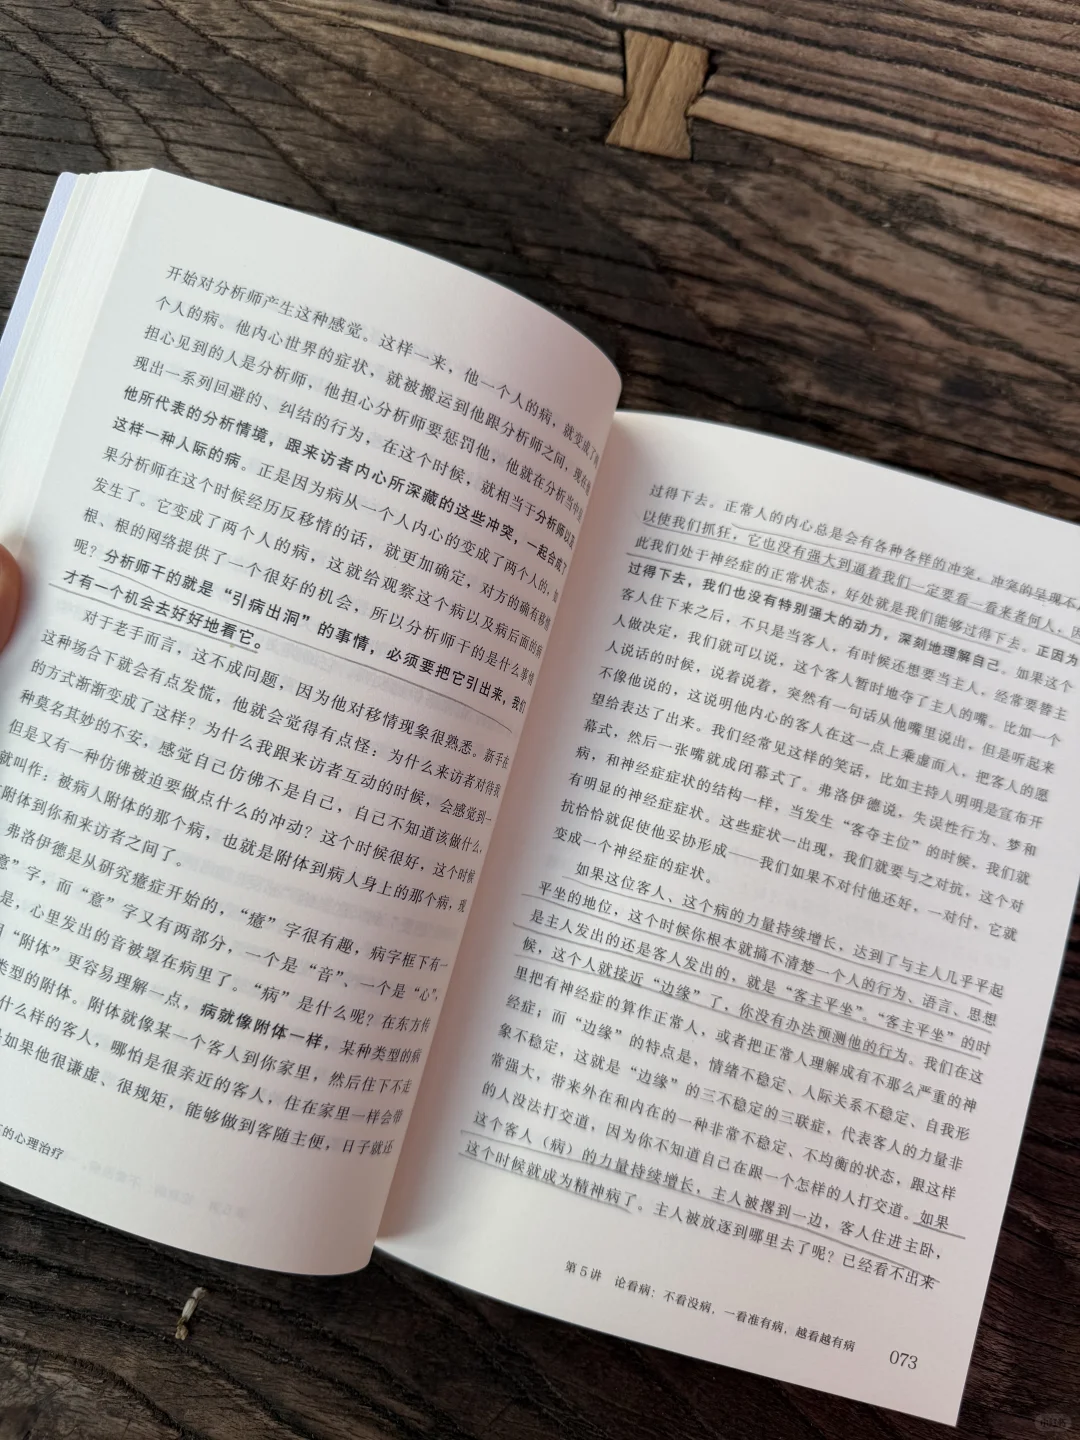 开始对分析师产生这种感觉。这样一来，他一个人的病，就变成了两
个人的病。他内心世界的症状，就被搬运到他跟分析师之间，现在他
担心见到的人是分析师，他担心分析师要惩罚他，他就在分析当中呈
现出一系列回避的、纠结的行为，在这个时候，就相当于分析师以及
他所代表的分析情境，跟来访者内心所深藏的这些冲突，一起合成了
这样一种人际的病。正是因为病从一个人内心的变成了两个人的，如
果分析师在这个时候经历反移情的话，就更加确定，对方的确有移情
发生了。它变成了两个人的病，这就给观察这个病以及病后面的病
根、根的网络提供了一个很好的机会，所以分析师干的是什么事情
呢？分析师干的就是“引病出洞”的事情，必须要把它引出来，我们
才有一个机会去好好地看它。
对于老手而言，这不成问题，因为他对移情现象很熟悉。新手在
这种场合下就会有点发慌，他就会觉得有点怪：为什么来访者对待我
的方式渐渐变成了这样？为什么我跟来访者互动的时候，会感觉到一
种莫名其妙的不安，感觉自己仿佛不是自己，自己不知道该做什么，
但是又有一种仿佛被迫要做点什么的冲动？这个时候很好，这个时候
就叫作：被病人附体的那个病，也就是附体到病人身上的那个病，现
附体到你和来访者之间了。
弗洛伊德是从研究癔症开始的，“癔”字很有趣，病字框下有一
意”字，而“意”字又有两部分，一个是“音”、一个是“心”，
是，心里发出的音被罩在病里了。“病”是什么呢？在东方传
“附体”更容易理解一点，病就像附体一样，某种类型的病
类型的附体。附体就像某一个客人到你家里，然后住下不走
什么样的客人，哪怕是很亲近的客人，住在家里一样会带
如果他很谦虚、很规矩，能够做到客随主便，日子就还
的心理治疗
过得下去。正常人的内心总是会有各种各样的冲突，冲突的呈现不足
以使我们抓狂，它也没有强大到逼着我们一定要看一看来者何人，因
此我们处于神经症的正常状态，好处就是我们能够过得下去。正因为
过得下去，我们也没有特别强大的动力，深刻地理解自己。如果这个
客人住下来之后，不只是当客人，有时候还想要当主人，经常要替主
人做决定，我们就可以说，这个客人暂时地夺了主人的嘴。比如一个
人说话的时候，说着说着，突然有一句话从他嘴里说出，但是听起来
不像他说的，这说明他内心的客人在这一点上乘虚而入，把客人的愿
望给表达了出来。我们经常见这样的笑话，比如主持人明明是宣布开
幕式，然后一张嘴就成闭幕式了。弗洛伊德说，失误性行为、梦和
病，和神经症症状的结构一样，当发生“客夺主位”的时候，我们就
有明显的神经症症状。这些症状一出现，我们就要与之对抗，这个对
抗恰恰就促使他妥协形成——我们如果不对付他还好，一对付，它就
变成一个神经症的症状。
如果这位客人、这个病的力量持续增长，达到了与主人几乎平起
平坐的地位，这个时候你根本就搞不清楚一个人的行为、语言、思想
是主人发出的还是客人发出的，就是“客主平坐”。“客主平坐”的时
候，这个人就接近“边缘”了，你没有办法预测他的行为。我们在这
里把有神经症的算作正常人，或者把正常人理解成有不那么严重的神
经症；而“边缘”的特点是，情绪不稳定、人际关系不稳定、自我形
象不稳定，这就是“边缘”的三不稳定的三联症，代表客人的力量非
常强大，带来外在和内在的一种非常不稳定、不均衡的状态，跟这样
的人没法打交道，因为你不知道自己在跟一个怎样的人打交道。如果
这个客人（病）的力量持续增长，主人被撂到一边，客人住进主卧，
这个时候就成为精神病了。主人被放逐到哪里去了呢？已经看不出来
第5讲 论看病：不看没病，一看准有病，越看越有病
073
小红书